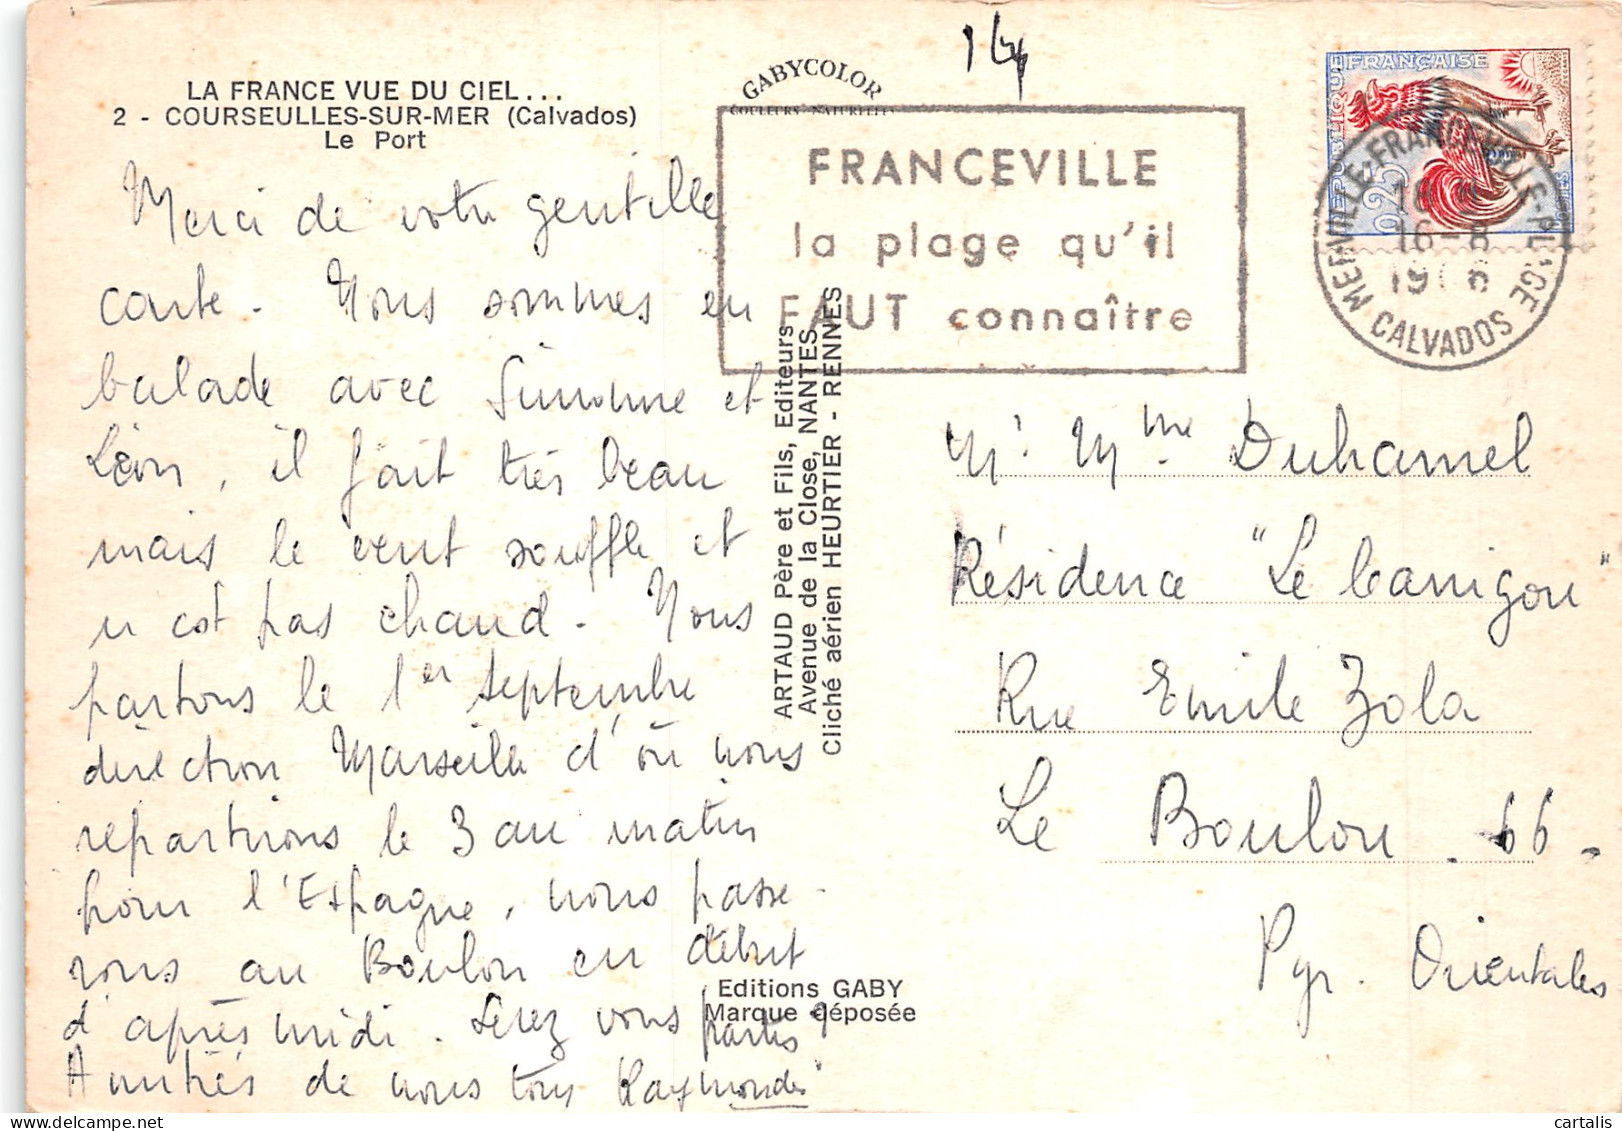 LA FRANCE VUE DU CIEL...
2 - COURSEULLES-SUR-MER (Calvados)
Le Port
Merci de votre gentille
carte. Nous sommes en
balade avec Simonne et
Léon, il fait très beau
mais le vent souffle et
n'est pas chaud. Nous
partons le 1er septembre
direction Marseille d'où nous
repartirons le 3 au matin
pour l'Espagne, nous passe-
rons au Boulou en début
d'après midi. Serez vous partis ?
Amitiés de nous tous Raymonde
14
GABYCOLOR
COULEURS NATURELLES
FRANCEVILLE
la plage qu'il
FAUT connaître
REPUBLIQUE FRANÇAISE
0,25
MERVILLE-FRANCEVILLE-PLAGE
16-8
CALVADOS
ARTAUD Père et Fils, Editeurs
Avenue de la Close, NANTES
Cliché aérien HEURTIER - RENNES
Mr Mme Duhamel
Résidence "Le Canigou"
Rue Emile Zola
Le Boulou. 66.
Pyr. Orientales
Editions GABY
Marque déposée
cartalis